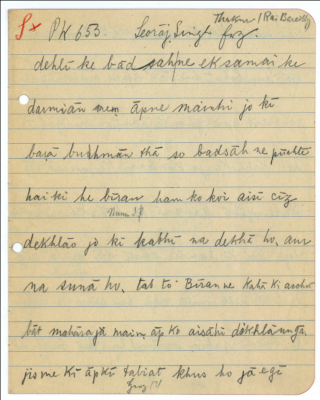 PK 653. Seoraj Singh Thakur (Rai Bareilly)
dehlī ke bād sāh ne ek samai ke
darmiān mem āpne maintri jo ki
baṛā budhmān thā so badsāh ne pūchte
hai ki he bīran ham ko koi aisī cīz
dekhlāo jo ki kabhī na dekhā ho, aur
na sunā ho, tab to Bīran ne kahā ki acchā
bāt mahārāja maim āp ko aisāhi dekhlāuṅgā.
jis me ki āpkī tabiat khus ho jāegī